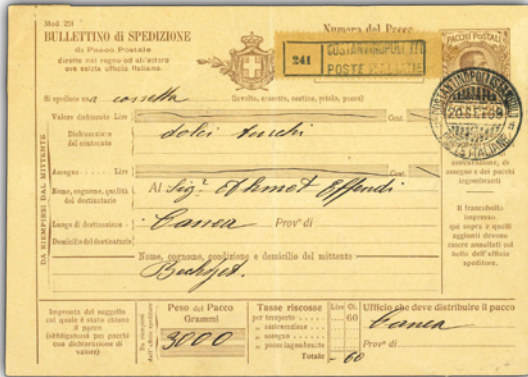 Mod. 251
BULLETTINO di SPEDIZIONE
di Pacco Postale
diretto nel regno od all'estero
ove esista ufficio Italiano.
Numero del Pacco
241
COSTANTINOPOLI
POSTE ITALIANE
PACCHI POSTALI
COSTANTINOPOLI
20.SET.09
POSTE ITALIANE
Si spedisce una cassetta (involto, cassetta, cestino, pacco)
Valore dichiarato Lire Cent.
Dichiarazione del contenuto dolci turchi
Assegno Lire Cent.
Nome, cognome, qualità del destinatario Al Sig.r Ahmet Effendi
Luogo di destinazione Canea Prov.a di
Domicilio del destinatario
DA RIEMPIRSI DAL MITTENTE
Nome, cognome, condizione e domicilio del mittente
assicurazione, di
assegno e dei pacchi
ingombranti
Il francobollo
impresso
qui sopra e quelli
aggiunti devono
essere annullati col
bollo dell'ufficio
speditore.
Impronta del suggello
col quale è stato chiuso
il pacco
(obbligatoria per pacchi
con dichiarazione di
valore)
Da riempirsi dall'ufficio speditore
Peso del Pacco
Grammi
3000
Tasse riscosse Lire Ct.
per trasporto 60
„ assicurazione
„ assegno
„ pacco ingombrante
Totale 60
Ufficio che deve distribuire il pacco
Canea
Prov.a di